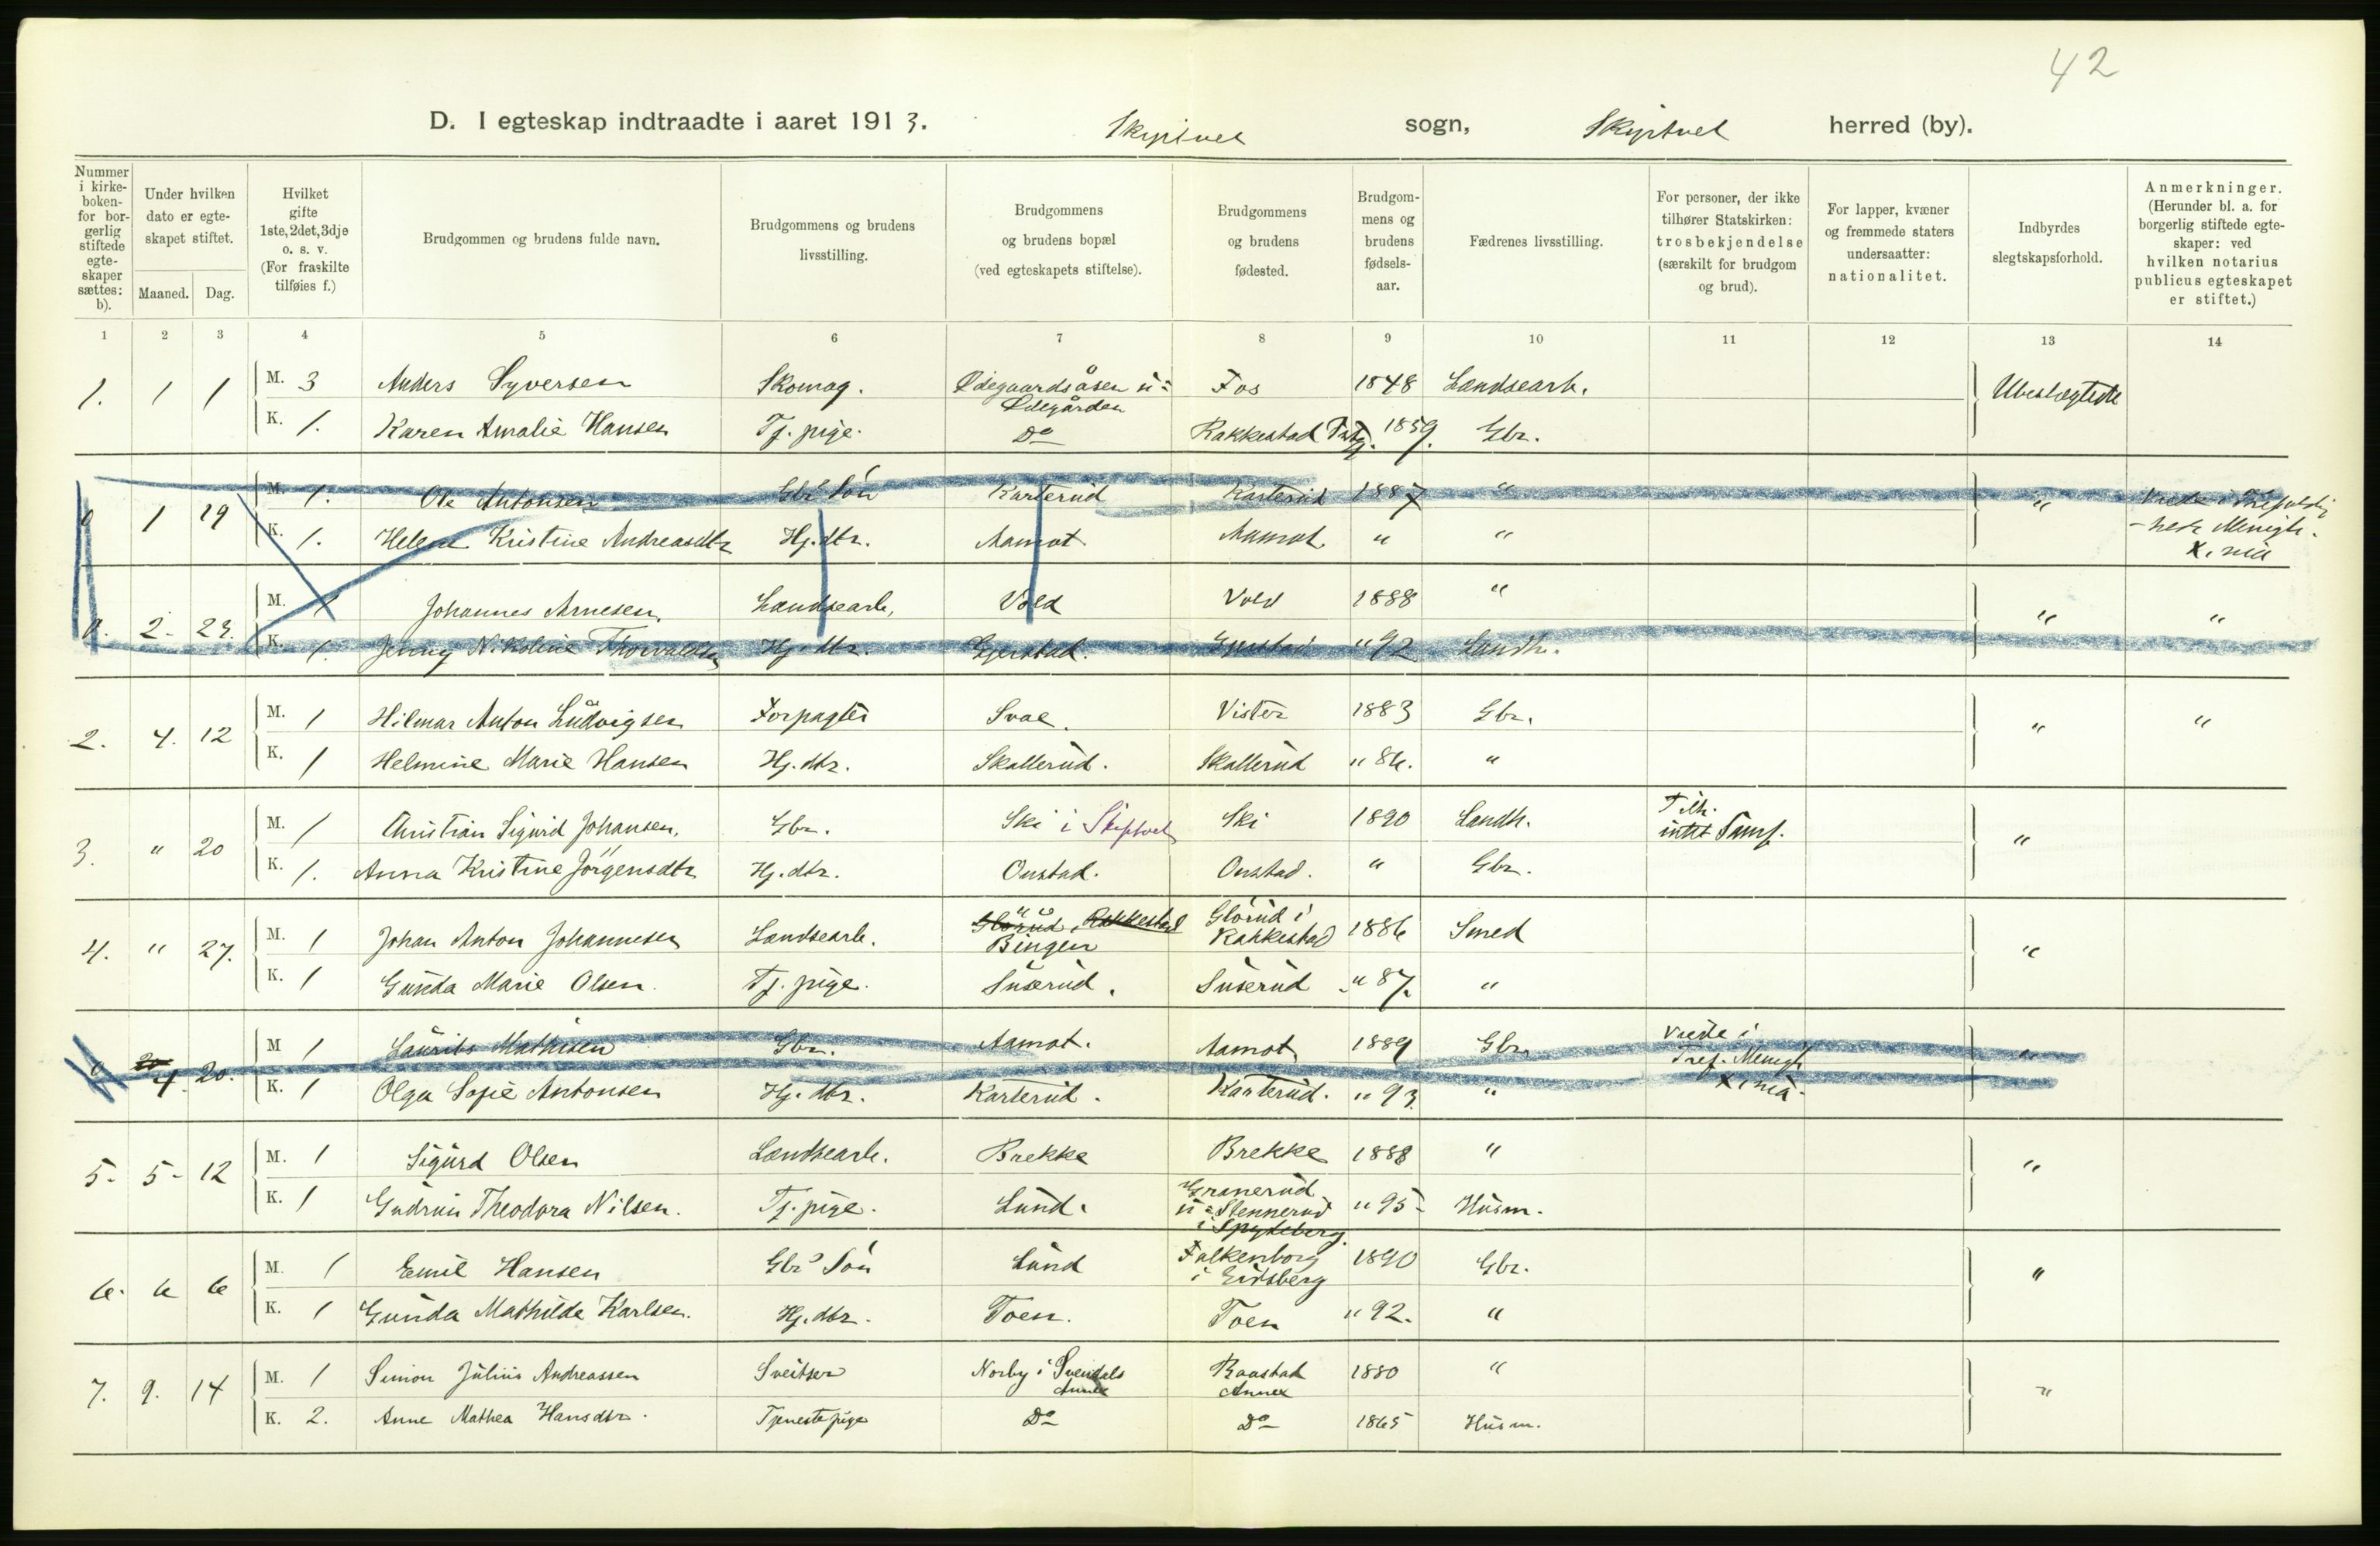 42
D. I egteskap indtraadte i aaret 1913. Skiptvet sogn, Skiptvet herred (by).
Nummer i kirkeboken- for borgerlig stiftede egteskaper sættes: b). | Under hvilken dato er egteskapet stiftet. Maaned. Dag. | Hvilket gifte 1ste, 2det, 3dje o. s. v. (For fraskilte tilføies f.) | Brudgommen og brudens fulde navn. | Brudgommens og brudens livsstilling. | Brudgommens og brudens bopæl (ved egteskapets stiftelse). | Brudgommens og brudens fødested. | Brudgommens og brudens fødselsaar. | Fædrenes livsstilling. | For personer, der ikke tilhører Statskirken: trosbekjendelse (særskilt for brudgom og brud). | For lapper, kvæner og fremmede staters undersaatter: nationalitet. | Indbyrdes slegtskapsforhold. | Anmerkninger. (Herunder bl. a. for borgerlig stiftede egteskaper: ved hvilken notarius publicus egteskapet er stiftet.)
1 2 3 4 5 6 7 8 9 10 11 12 13 14
1. 1 1 M. 3 Anders Syversen Skomag. Ødegaardsåsen u= Ødegården Fos 1848 Landsearb. Ubeslægtede
K. 1. Karen Amalie Hansen Tj. pige. Do Rakkestad Prstg. 1859. Gbr.
0 1 19 M. 1. Ole Antonsen Gbr Søn Karterud Karterud 1887 " "
K. 1. Helene Kristine Andreasdtr Hj. dtr. Aamot Aamot " "
0. 2- 23. M. 1 Johannes Arnesen. Landsearb. Vold Vold 1888 " " "
K. 1. Jenny Nikoline Thorvaldsen Hj. dtr. Gjerstad. Gjerstad " 92 Landh.
2. 4. 12 M. 1 Hilmar Anton Ludvigsen Forpagter Svae. Vister 1883 Gbr. " "
K. 1 Helmine Marie Hansen Hj. dtr. Skallerud. Skallerud " 86. "
3. " 20 M. 1 Christian Sigurd Johansen. Gbr. Ski i Skiptvet Ski 1890 Landh. Tilh. intet Samf. "
K. 1. Anna Kristine Jörgensdtr Hj. dtr. Onstad. Onstad. " Gbr.
4. " 27. M. 1 Johan Anton Johannesen Landsearb. Glörud, Rakkestad Bingen Glörud i Rakkestad 1886 Smed "
K. 1 Gunda Marie Olsen. Tj. pige. Suserud. Suserud " 87. "
0 4 20. M 1 Laurits Mathisen Gbr. Aamot. Aamot 1889 Gbr. Viede i Pref. Menigh. "
K. 1 Olga Sofie Antonsen Hj. dtr. Karterud. Karterud. " 93. "
5- 5- 12 M. 1 Sigurd Olsen Landsearb. Brekke Brekke 1888 " "
K. 1 Gudrun Theodora Nilsen. Tj. pige. Lund. Granerud u= Stennerud i Spydeberg. " 95- Husm.
6. 6 6 M. 1 Emil Hansen Gbr Søn Lund Falkenborg i Eidsberg 1890 Gbr. "
K. 1 Gunda Mathilde Karlsen. Hj. dtr. Toen. Toen " 92. "
7. 9. 14 M. 1 Simon Julius Andreassen Sveitser Norby i Svendals Annex Raastad Annex 1880 " "
K. 2. Anne Mathea Hansdtr. Tjenestepige Do Do 1865 Husm.